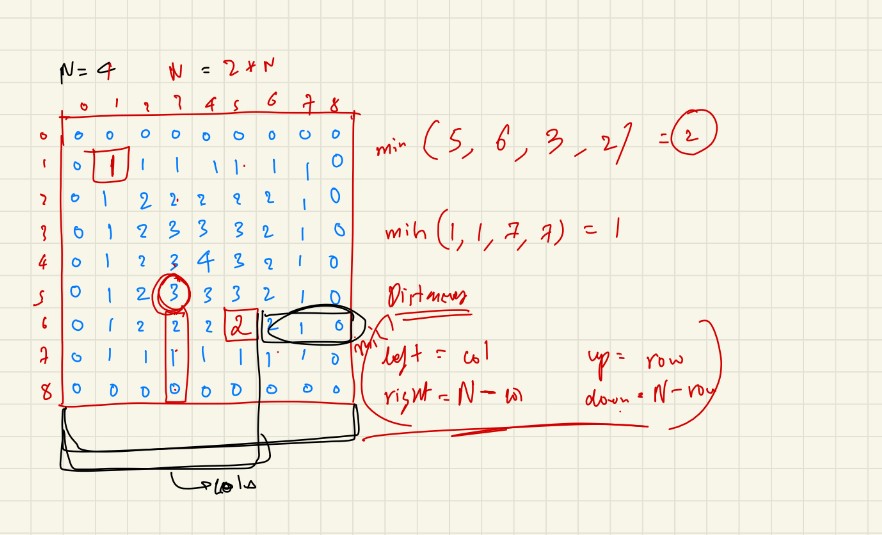 N = 4 N = 2 * N
0 1 2 3 4 5 6 7 8
0 0 0 0 0 0 0 0 0 0
1 0 1 1 1 1 1 1 1 0
2 0 1 2 2 2 2 2 1 0
3 0 1 2 3 3 3 2 1 0
4 0 1 2 3 4 3 2 1 0
5 0 1 2 3 3 3 2 1 0
6 0 1 2 2 2 2 2 1 0
7 0 1 1 1 1 1 1 1 0
8 0 0 0 0 0 0 0 0 0
cols
min (5, 6, 3, 2) = 2
min (1, 1, 7, 7) = 1
Distances
min
left = col up = row
right = N - col down = N - row